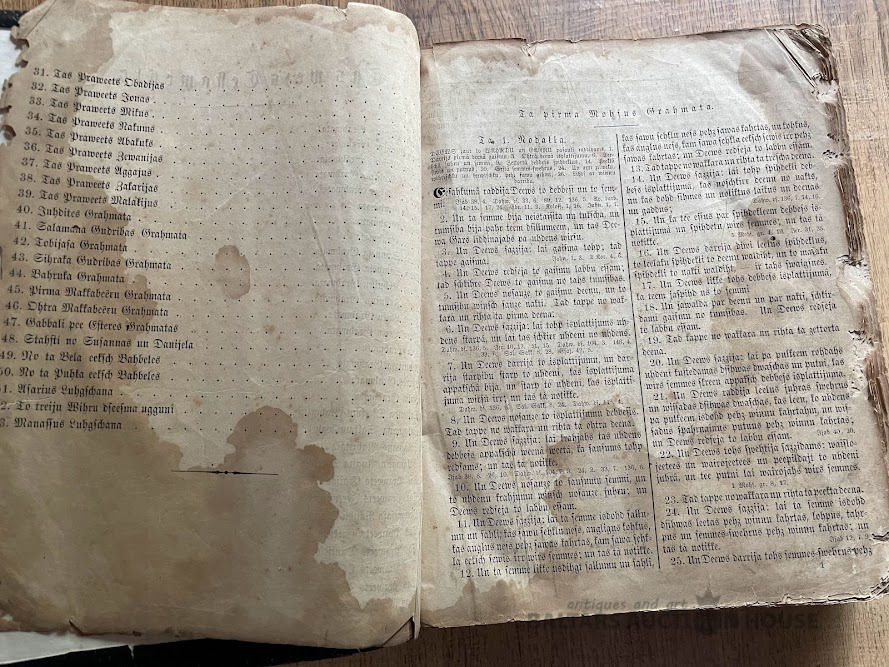 31. Tas Praweets Obadijas
32. Tas Praweets Jonas
33. Tas Praweets Mikus
34. Tas Praweets Nakuns
35. Tas Praweets Abakuks
36. Tas Praweets Zewanijas
37. Tas Praweets Aggajus
38. Tas Praweets Zakarijas
39. Tas Praweets Malakijus
40. Juhdites Grahmata
41. Salamana Gudribas Grahmata
42. Tobijasa Grahmata
43. Sihraka Gudribas Grahmata
44. Bahruka Grahmata
45. Pirma Makkabeëru Grahmata
46. Ohtra Makkabeëru Grahmata
47. Gabbali pee Esteres Grahmatas
48. Stahsti no Susannas un Danijela
49. No ta Bela eeksch Bahbeles
50. No ta Puhka eeksch Bahbeles
51. Asarius Luhgschana
2. To treiju Wihru dseesma ugguni
3. Manassus Luhgschana
Ta pirma Mohsus Grahmata.
Ta 1. Nodalla.
Eesahkumâ raddija Deews to debbesi un to semmi.
2. Un ta semme bija neistaisita un tukscha, un
tumsiba bija pahr teem dillumeem, un tas Deewa
Gars lidinajahs pa uhdens wirsu.
3. Un Deews sazzija: lai gaisma tohp; tad
tappe gaisma.
4. Un Deews redseja to gaismu labbu essam;
tad schkihre Deews to gaismu no tahs tumsibas.
5. Un Deews nosauze to gaismu deenu, un to
tumsibu nosauze winsch nakti. Tad tappe no wakkara
un rihta ta pirma deena.
6. Un Deews sazzija: lai tohp isplattijums
7. Un Deews darrija to isplattijumu, un darrija
starpibu starp to uhdeni, kas isplattijuma
appakschâ bija, un starp to uhdeni, kas isplattijuma
wirsû irr; un tas tà notikke.
8. Un Deews nosauze to isplattijumu debbesis.
Tad tappe no wakkara un rihta ta ohtra deena.
9. Un Deews sazzija: lai krahjahs tas uhdens
debbess appakschâ weenâ weetâ, ka sausums tohp
redsams; un tas tà notikke.
10. Un Deews nosauze to sausumu semmi, un
to uhdenu krahjumu winsch nosauze juhru; un
Deews redseja to labbu essam.
11. Un Deews sazzija: lai ta semme isdohd sallumu
un sahli, kas jawu sehklu nejs, augligus kohkus,
kas auglus nejs pehz jawas kahrtas, kam jawa sehkla
eeksch sewis irr wirs semmes; un tas tà notikke.
12. Un ta semme likke usdihgt sallumu un sahli,
kas jawu sehklu nejs pehz jawas kahrtas, un kohkus,
kas auglus nejs, kam jawa sehkla eeksch sewis irr pehz
jawas kahrtas; un Deews redseja to labbu essam.
13. Tad tappe no wakkara un rihta ta treschа deena.
14. Un Deews sazzija: lai tohp spihdekli debbess
isplattijumâ, kas noschkirr deenu no nakts,
un kas dohd sihmes un noliktus laikus un deenas
un gaddus;
15. Un ka tee essus par spihdekleem debbess isplattijumâ
un spihdetu wirs semmes; un tas tà
notikke.
16. Un Deews darrija diwi leelus spihdeklus,
to leelaku spihdekli to deenu waldiht, un to masaku
spihdekli to nakti waldiht, ir tahs swaigsnes.
17. Un Deews likke tohs pee debbess isplattijuma,
ka teem jaspihd us to semmi
18. Un jawalda par deenu un par nakti, schkirrdami
gaismu no tumsibas. Un Deews redseja
to labbu essam.
19. Tad tappe no wakkara un rihta ta zetturta
deena.
20. Un Deews sazzija: lai pa pulkeem rohdahs
uhdenî kustedamas dsihwas dwaschas, un putni, kas
wirs semmes skreen appaksch debbess isplattijuma.
21. Un Deews raddija leelus juhras swehrus
un wissadas dsihwas dwaschas, kas leen, ko uhdens
pa pulkeem isdewe pehz winnu kahrtahm, un wissadus
spahrnainus putnus pehz winnu kahrtas;
un Deews redseja to labbu essam.
22. Un Deews tohs swehtija sazzidams: waislojatees
un wairojatees un peepildajt to uhdeni
juhrâ, un tee putni lai wairojahs wirs semmes.
23. Tad tappe no wakkara un rihta ta peekta deena.
24. Un Deews sazzija: lai ta semme isdohd
dsihwas leetas pehz winnu kahrtas, lohpus, tahrpus
un semmes swehrus pehz winnu kahrtas; un
tas tà notikke.
25. Un Deews darrija tohs semmes-swehrus pehz
1
antiques and art
BALTARS AUCTION HOUSE